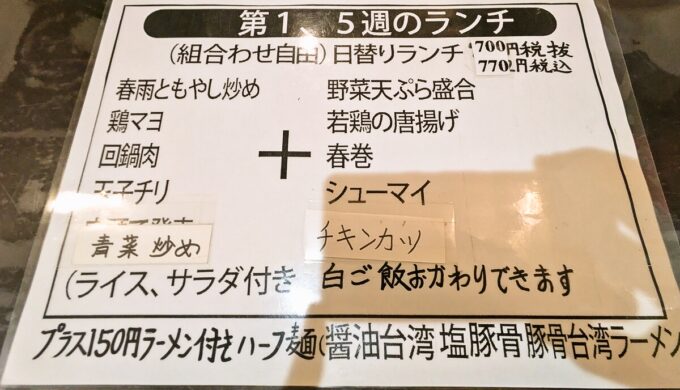 第1、5週のランチ
(組合わせ自由)日替りランチ 700円税抜
770円税込
春雨ともやし炒め 野菜天ぷら盛合
鶏マヨ 若鶏の唐揚げ
回鍋肉 + 春巻
玉子チリ シューマイ
青菜炒め チキンカツ
(ライス、サラダ付き 白ご飯おかわりできます
プラス150円ラーメン付きハーフ麺(醤油台湾 塩豚骨 豚骨台湾ラーメン